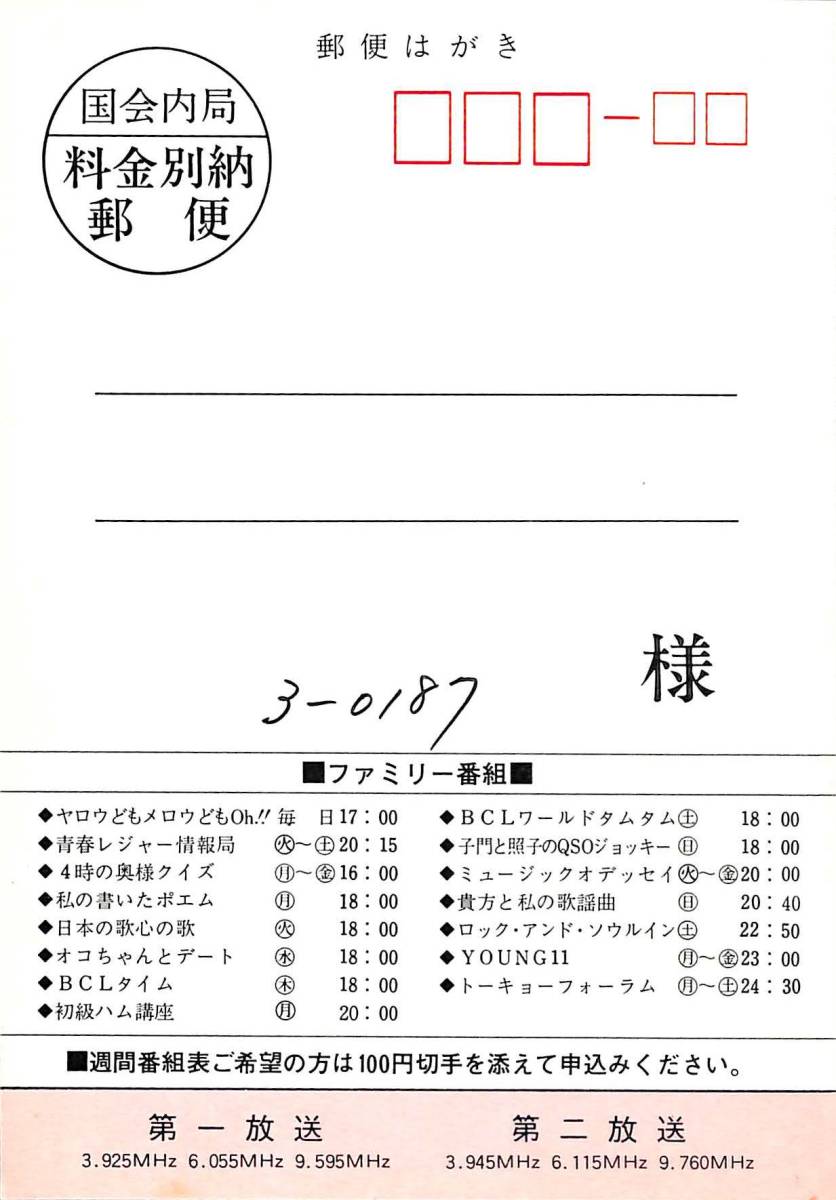 郵便はがき
国会内局
料金別納
郵 便
様
3-0187
■ファミリー番組■
◆ヤロウどもメロウどもOh.!! 毎 日17：00
◆青春レジャー情報局 ㊋〜㊏20：15
◆4時の奥様クイズ ㊊〜㊎16：00
◆私の書いたポエム ㊊ 18：00
◆日本の歌心の歌 ㊋ 18：00
◆オコちゃんとデート ㊌ 18：00
◆BCLタイム ㊍ 18：00
◆初級ハム講座 ㊊ 20：00
◆BCLワールドタムタム㊏ 18：00
◆子門と照子のQSOジョッキー ㊐ 18：00
◆ミュージックオデッセイ㊋〜㊎20：00
◆貴方と私の歌謡曲 ㊐ 20：40
◆ロック・アンド・ソウルイン㊏ 22：50
◆YOUNG11 ㊊〜㊎23：00
◆トーキョーフォーラム ㊊〜㊏24：30
■週間番組表ご希望の方は100円切手を添えて申込みください。
第一放送
3.925MHz 6.055MHz 9.595MHz
第二放送
3.945MHz 6.115MHz 9.760MHz